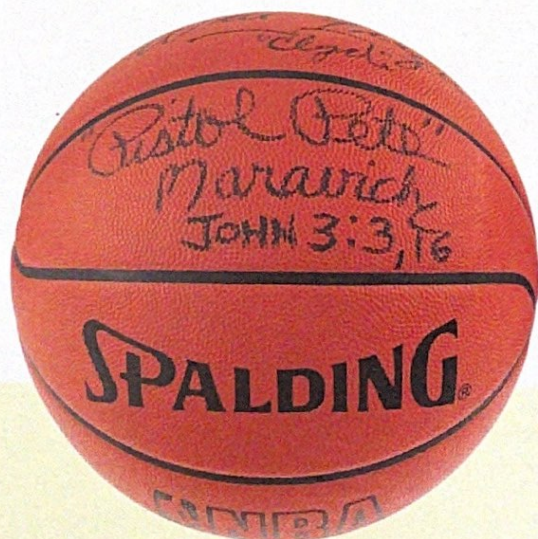 "Clyde"
"Pistol Pete"
Maravich
JOHN 3:3,16
SPALDING®
NBA